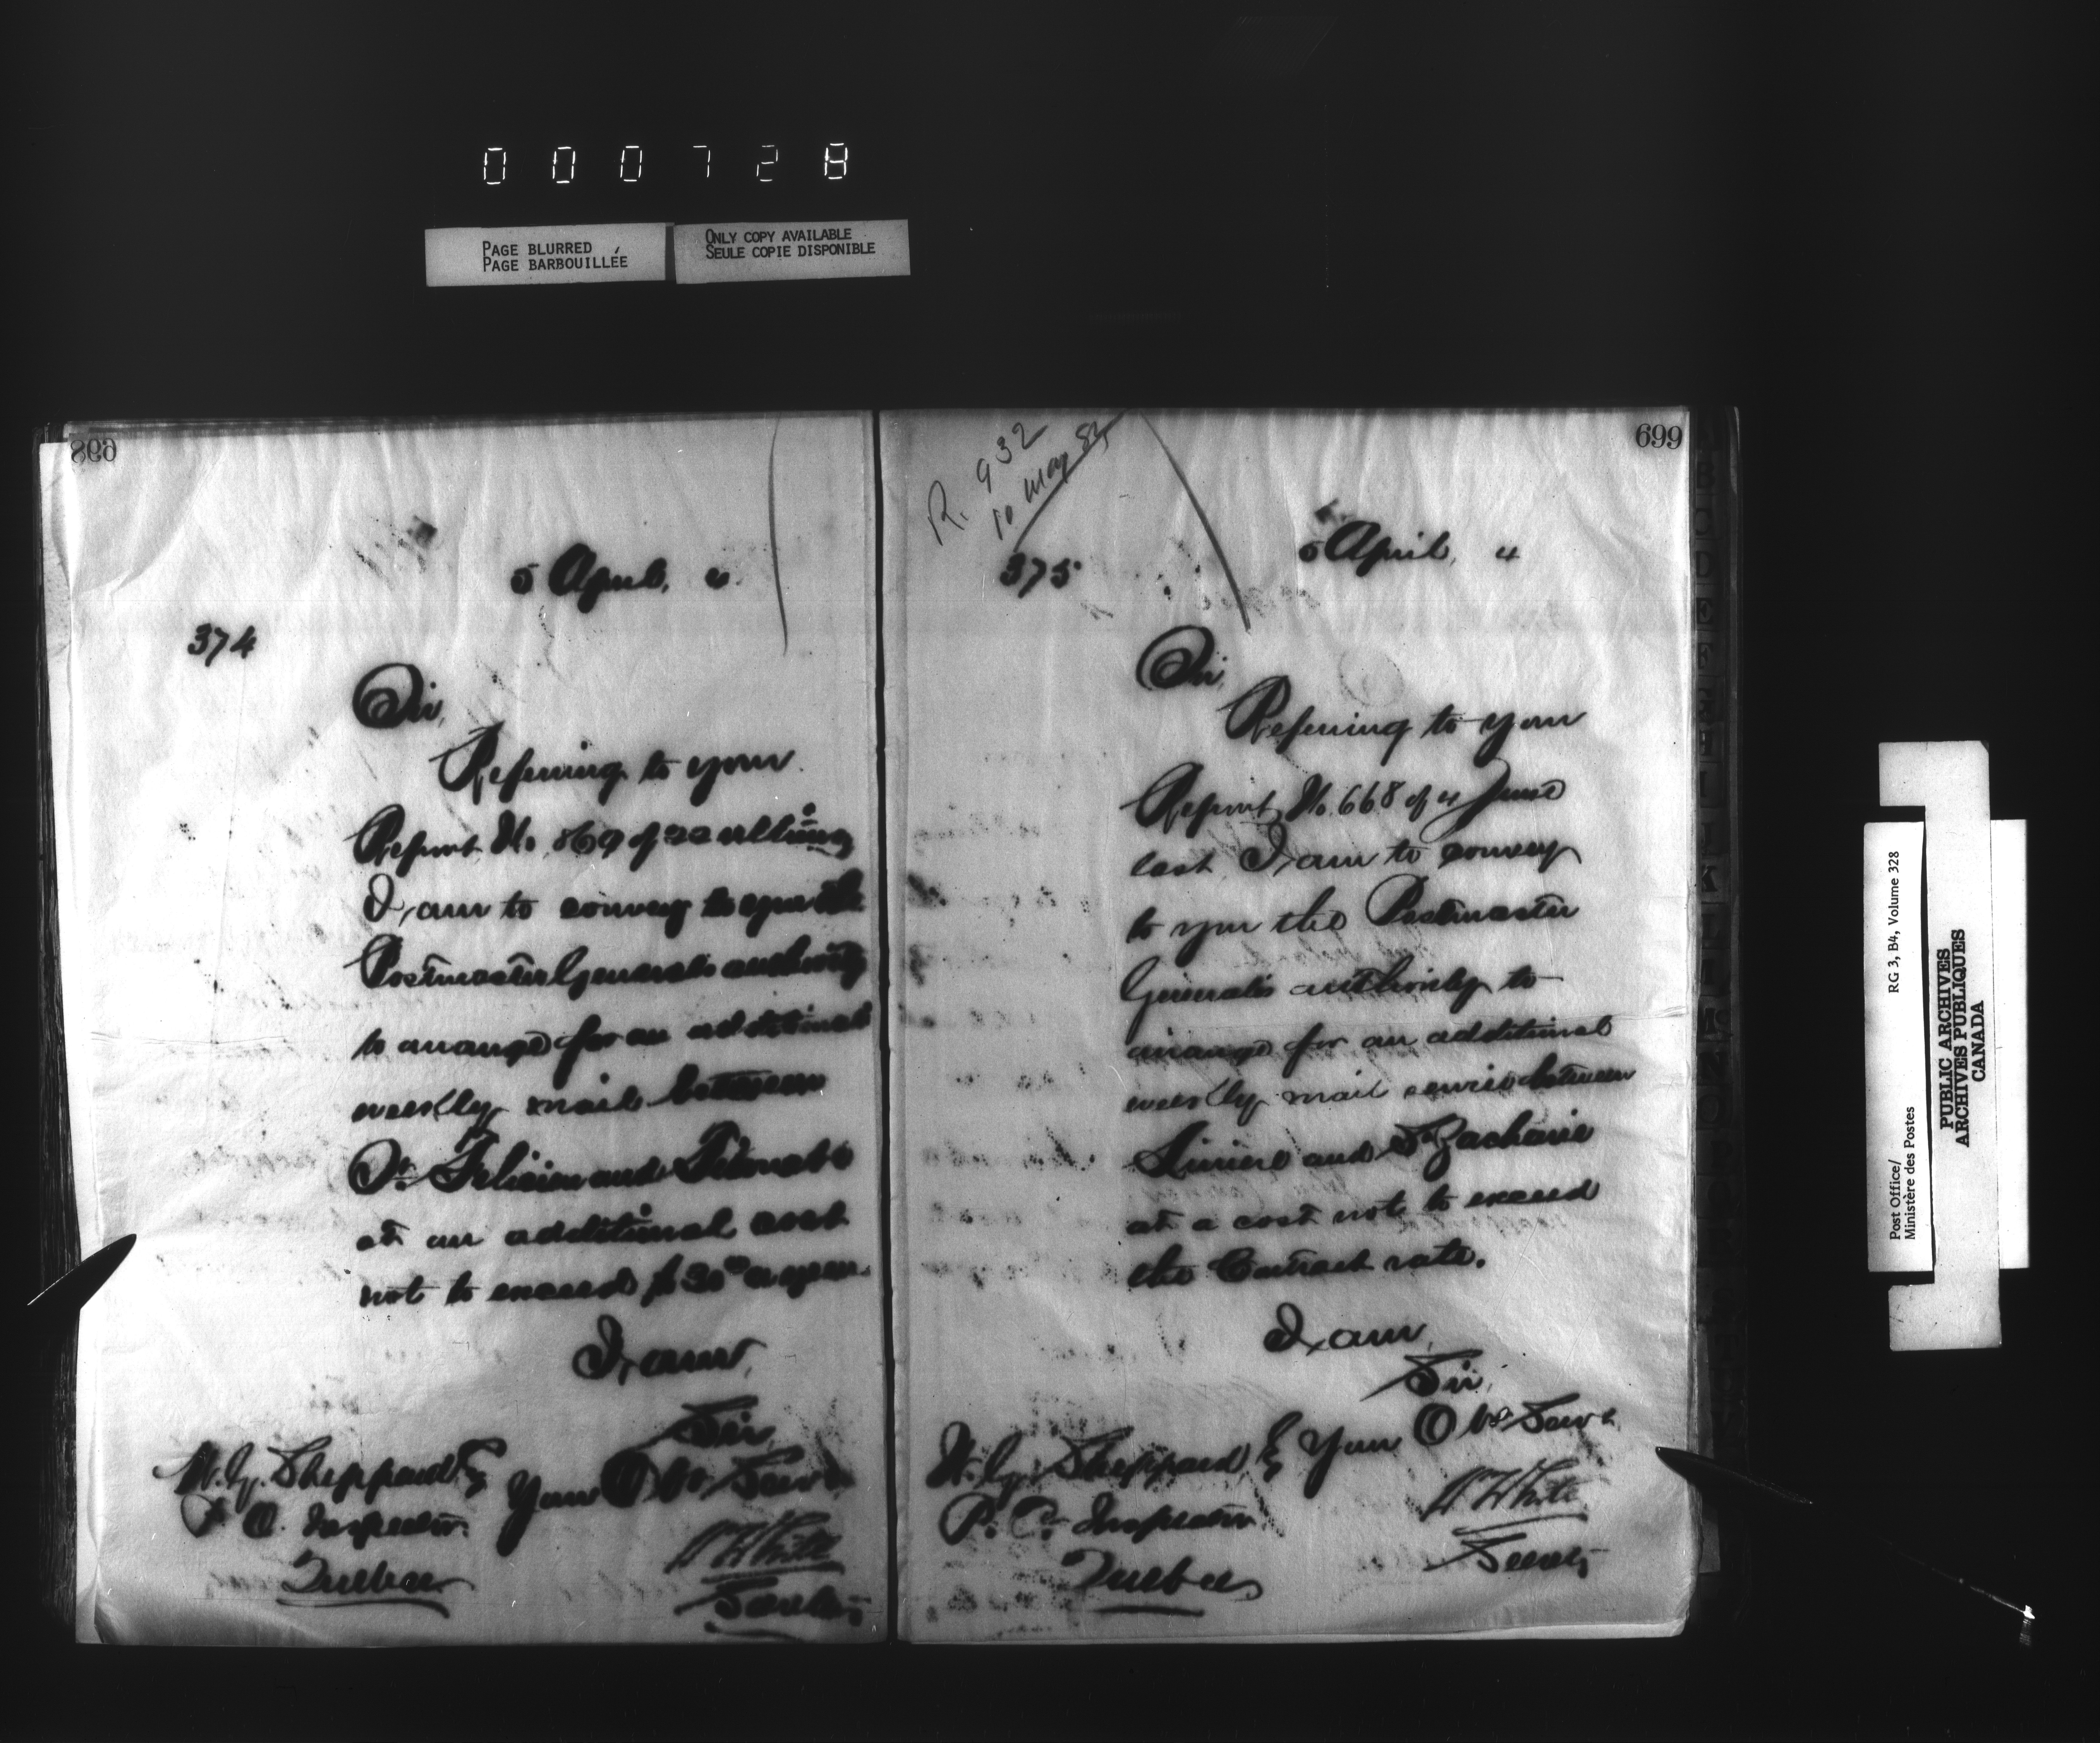 000728
PAGE BLURRED
PAGE BARBOUILLÉE
ONLY COPY AVAILABLE
SEULE COPIE DISPONIBLE
698
5 April, 4
374
Sir,
Referring to your
Report No. 869 of 22 ultimo
I am to convey to you the
Postmaster General's authority
to arrange for an additional
weekly mail between
St. Felicien and
at an additional cost
not to exceed $30 00 a year.
I am,
Sir,
Your Obt Servt
W. G. Sheppard Esq
P. O. Inspector
Quebec
W White
Secrety
699
R. 932
10 May 84
375
5 April, 4
Sir,
Referring to your
Report No. 668 of 4 June
last, I am to convey
to you the Postmaster
General's authority to
arrange for an additional
weekly mail service between
Liniere and St Zacharie
at a cost not to exceed
the Contract rate.
I am,
Sir,
Your Obt Servt
W. G. Sheppard Esq
P. O. Inspector
Quebec
W White
Secrety
Post Office/
Ministère des Postes
RG 3, B4, Volume 328
PUBLIC ARCHIVES
ARCHIVES PUBLIQUES
CANADA